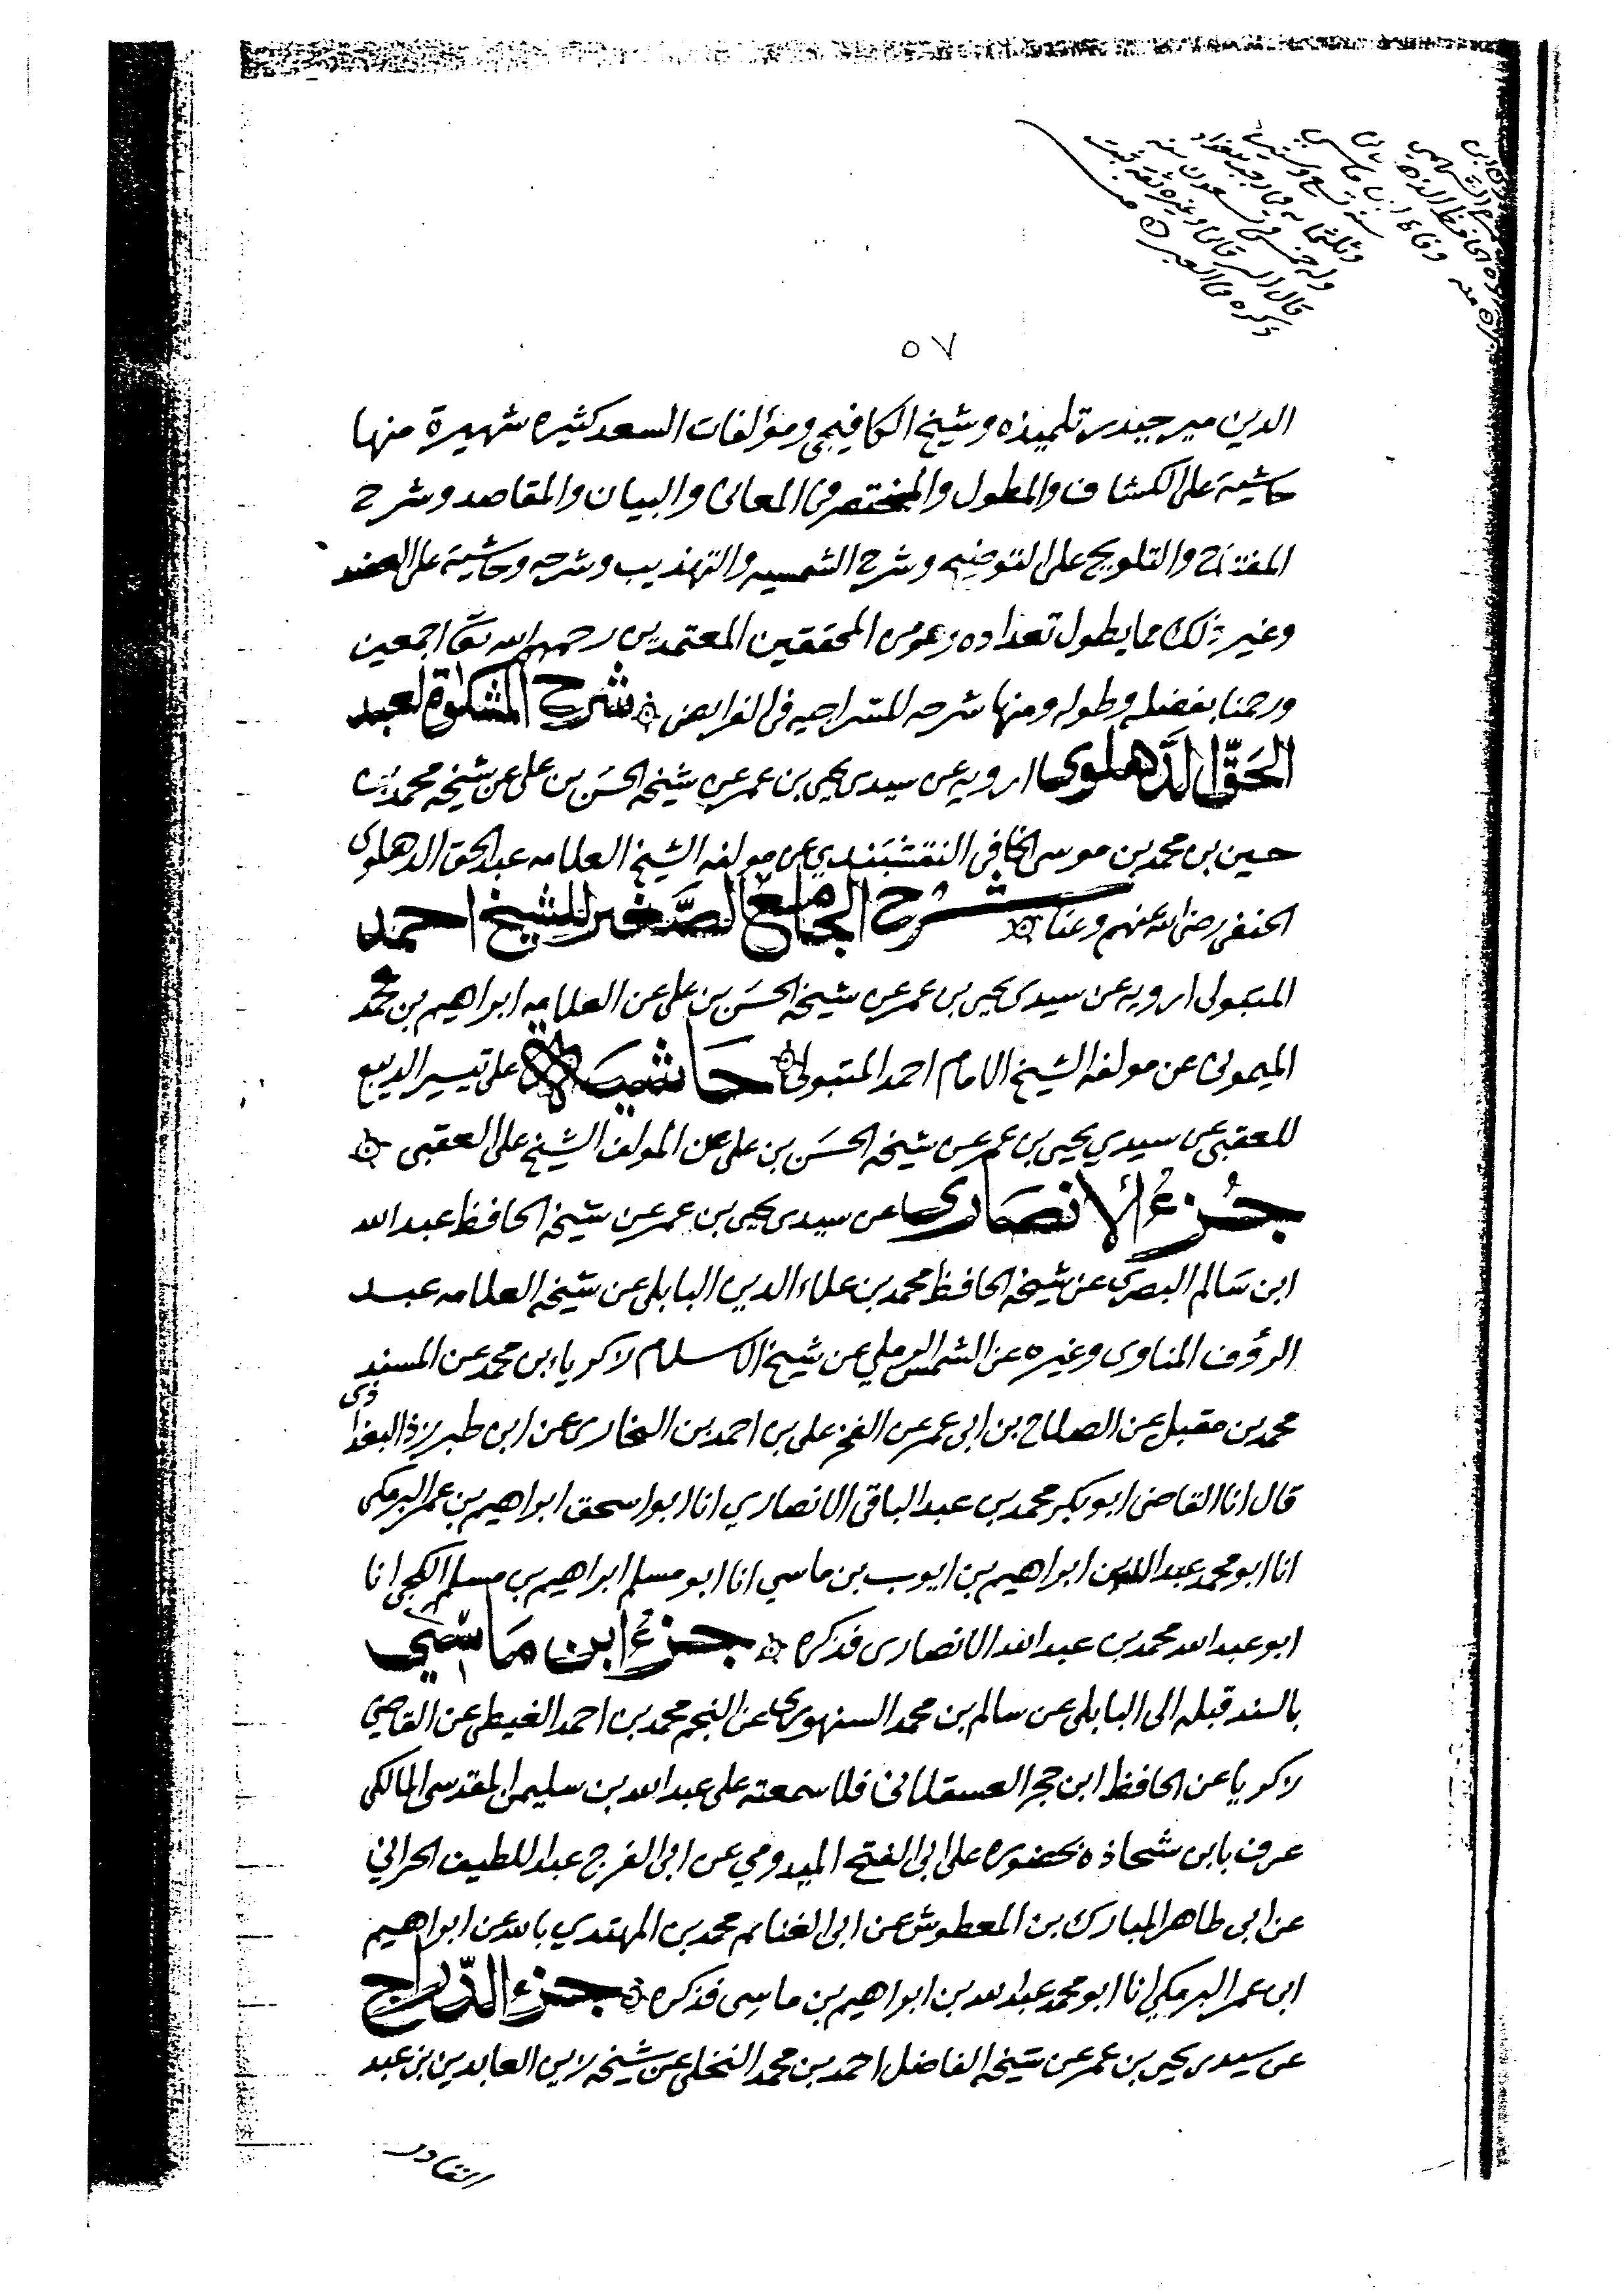 وفاة ابن ماسي
سنة تسع وستين
وثلثمائة في رجب ببغداد
وله خمس وتسعون سنة
قال البرقاني وغيره ثقة ثبت
ذكره في العبر
٥٧
الدين مير حيدر تلميذه وشيخ الكافيجي ومؤلفات السعد كثيره شهيرة منها
حاشية على الكشاف والمطول والمختصر في المعاني والبيان والمقاصد وشرح
المفتاح والتلويح على التوضيح وشرح الشمسيه والتهذيب وشرحه وحاشية على العضد
وغير ذلك مما يطول تعداده وعوس المحققين المعتمدين رحمهم الله تعا اجمعين
ورحمنا بفضله وطوله ومنها شرحه للسراجيه في الفرايض شرح المشكوة لعبد
الحق الدهلوي ارويه عن سيدي يحيى بن عمر عن شيخه الحسن بن علي عن شيخه محمد بن
حسين بن محمد بن موسى الخافي النقشبندي عن مولفه الشيخ العلامه عبد الحق الدهلوي
الحنفي رضي الله عنهم وعنا شرح الجامع الصغير للشيخ احمد
المتبولي ارويه عن سيدي يحيى بن عمر عن شيخه الحسن بن علي عن العلامه ابراهيم بن محمد
الميموني عن مولفه الشيخ الامام احمد المتبولي حاشية على تيسير الديبع
للعقبي عن سيدي يحيى بن عمر عن شيخه الحسن بن علي عن المولف الشيخ علي العقبي
جزء الانصاري عن سيدي يحيى بن عمر عن شيخه الحافظ عبد الله
ابن سالم البصري عن شيخه الحافظ محمد بن علاء الدين البابلي عن شيخه العلامه عبد
الرؤف المناوي وغيره عن الشمس الرملي عن شيخ الاسلام زكرياء بن محمد عن المسند
محمد بن مقبل عن الصلاح بن ابي عمر عن الفخر علي بن احمد بن البخاري عن ابن طبرزذ البغدادي
قال انا القاضي ابو بكر محمد بن عبد الباقي الانصاري انا ابو اسحق ابراهيم بن عمر البرمكي
انا ابو محمد عبد الله بن ابراهيم بن ايوب بن ماسي انا ابو مسلم ابراهيم بن مسلم الكجي انا
ابو عبد الله محمد بن عبد الله الانصاري فذكره جزء ابن ماسي
بالسند قبله الى البابلي عن سالم بن محمد السنهوري عن النجم محمد بن احمد الغيطي عن القاضي
زكريا عن الحافظ ابن حجر العسقلاني فلا سمعته على عبد الله بن سليمن المقدسي المالكي
عرف بابن شحاذه بحضوره على ابي الفتح الميدومي عن ابي الفرج عبد اللطيف الحراني
عن ابي طاهر المبارك بن المعطوش عن ابي الغنايم محمد بن المهتدي بالله عن ابراهيم
ابن عمر البرمكي انا ابو محمد عبد الله بن ابراهيم بن ماسي فذكره جزء الدراج
عن سيدي يحيى بن عمر عن شيخه الفاضل احمد بن محمد النخلي عن شيخه زين العابدين بن عبد
القادر